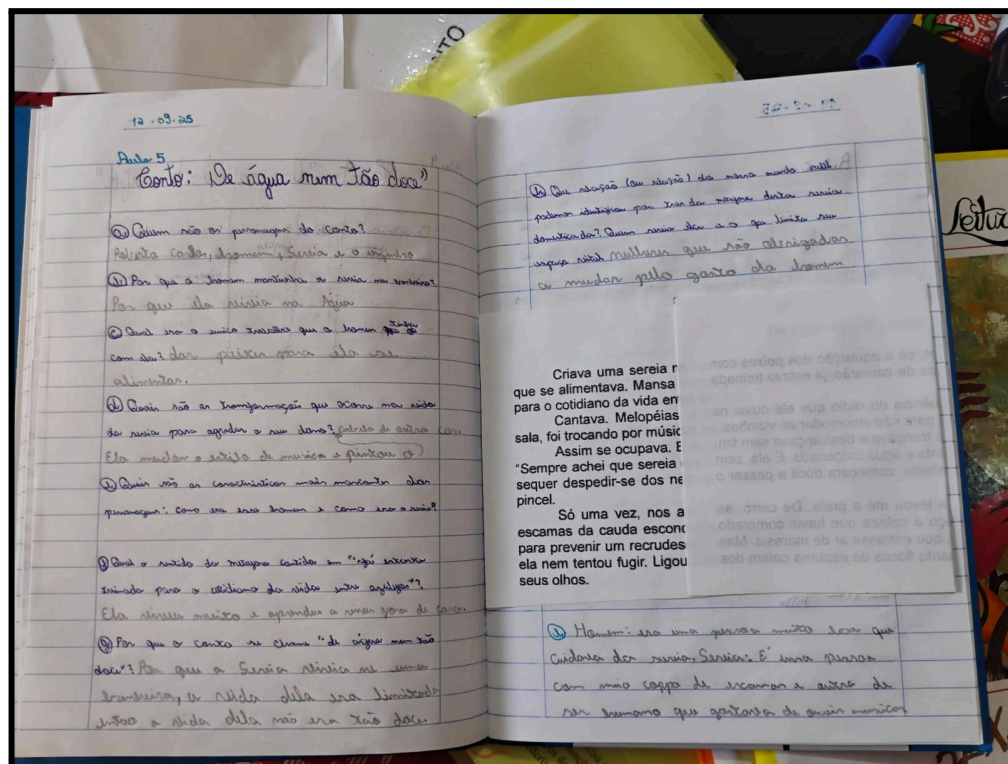 12.09.25
Aula 5
Conto: "De água nem tão doce"
a) Quem são os personagens do conto?
homem, Sereia e o
b) Por que o homem mantinha a sereia na banheira?
Por que ela vivia na água
c) Qual era o único trabalho que o homem tinha
com ela? dar peixes para ela se
alimentar.
d) Quais são as transformações que ocorre na vida
da sereia para agradar o seu dono? cabelo de outra cor.
Ela mudou o estilo de musica e pintou o
e) Quais são as características mais marcantes dos
personagens: como era esse homem e como era a sereia?
f) Qual o sentido da metáfora contida em
treinada para o cotidiano da vida entre azulejos"?
Ela viveu muito e aprendeu a viver fora de
g) Por que o conto se chama "de água nem tão
doce"? Por que a Sereia vivia na uma
banheira, a vida dela era limitada
então a vida dela não era tão doce.
h) Que relação (ou relações) do nosso mundo
podemos identificar por tras da metáfora desta sereia
domesticada? Quem seria ela e o que limita seu
espaço vital? mulheres que são obrigadas
a mudar pello gosto do homem
Leitu
Criava uma sereia n
que se alimentava. Mansa
para o cotidiano da vida en
Cantava. Melopéias
sala, foi trocando por músic
Assim se ocupava. E
"Sempre achei que sereia
sequer despedir-se dos ne
pincel.
Só uma vez, nos a
escamas da cauda escond
para prevenir um recrudes
ela nem tentou fugir. Ligou
seus olhos.
e) Homem: era uma pessoa muito boa que
cuidava da sereia. Sereia: É uma pessoa
com meio coppo de escamas e outra de
ser humano que gostava de ouvir musicas